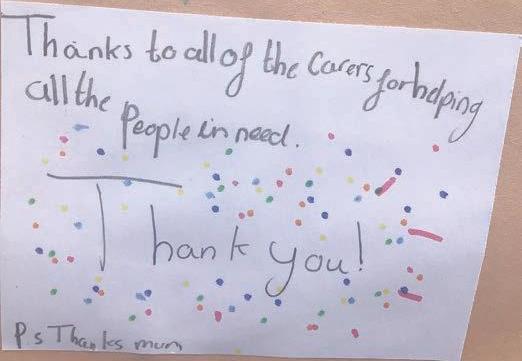 Thanks to all of the Carers for helping
all the People in need.
Thank you!
P.s Thanks mum